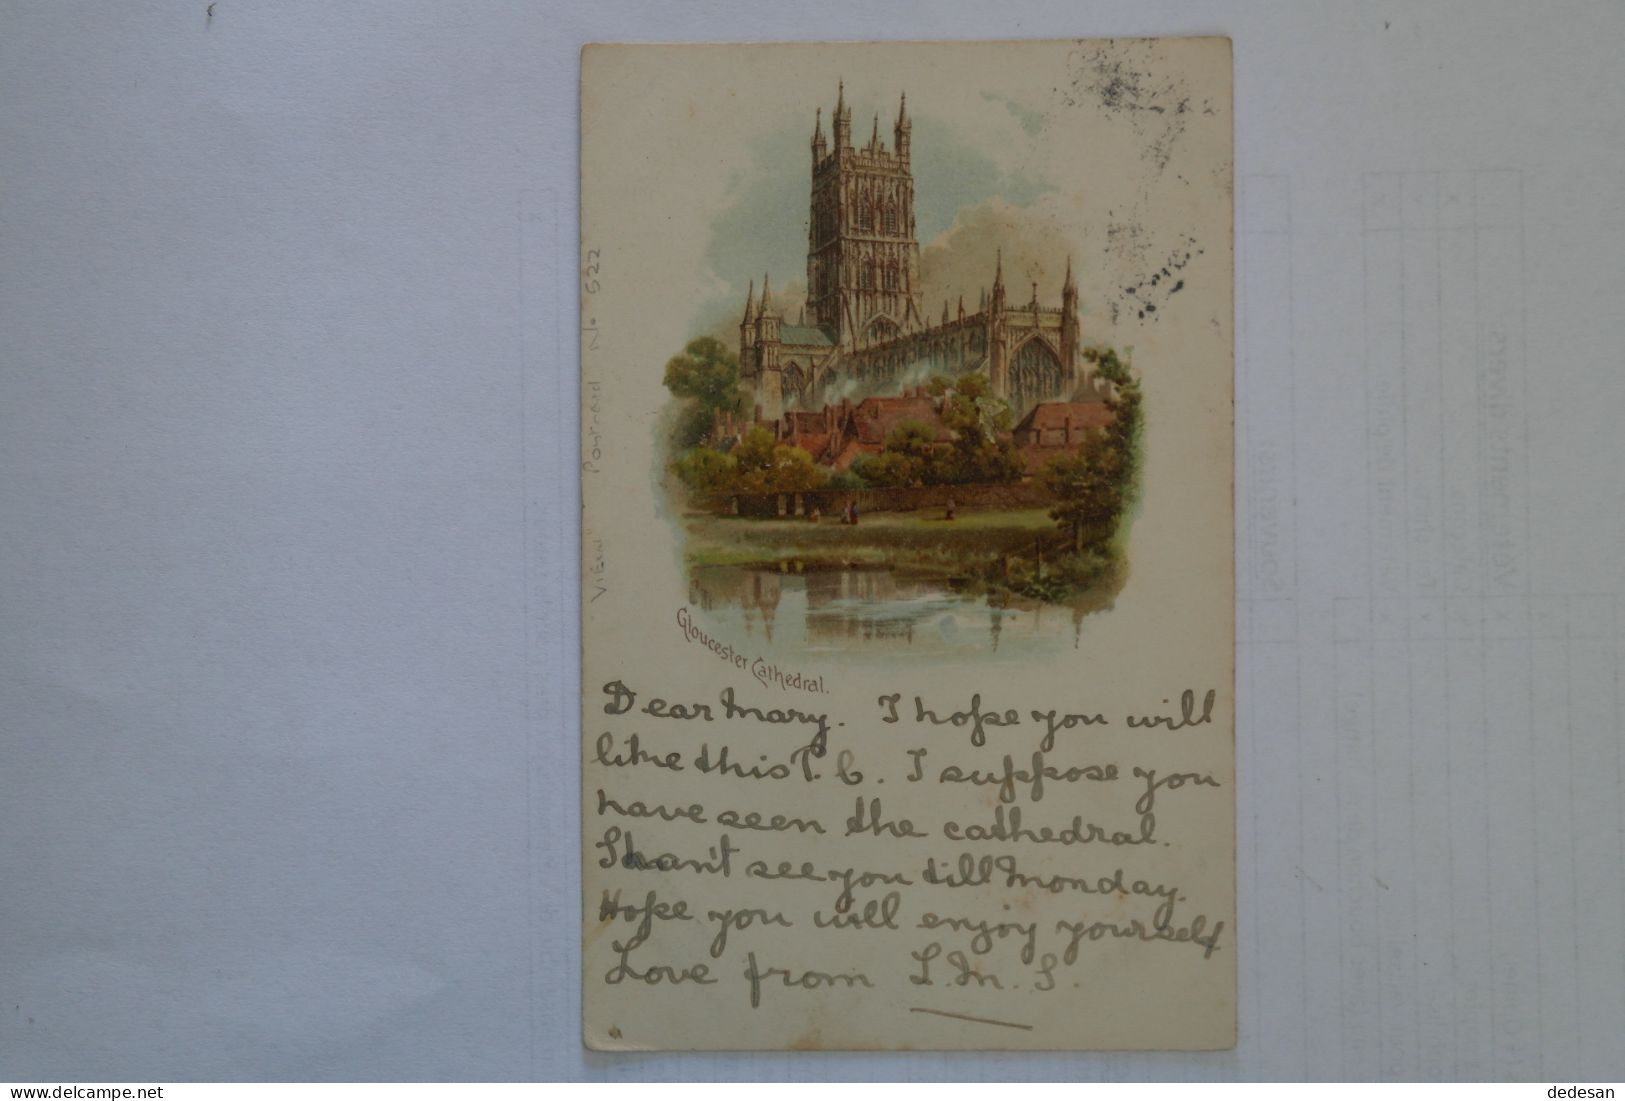 "VIEW" Postcard No 522
Gloucester Cathedral.
Dear Mary. I hope you will
like this P. C. I suppose you
have seen the cathedral.
Shan't see you till Monday.
Hope you will enjoy yourself
Love from L. M. S.
Delcampe.net
dedesan